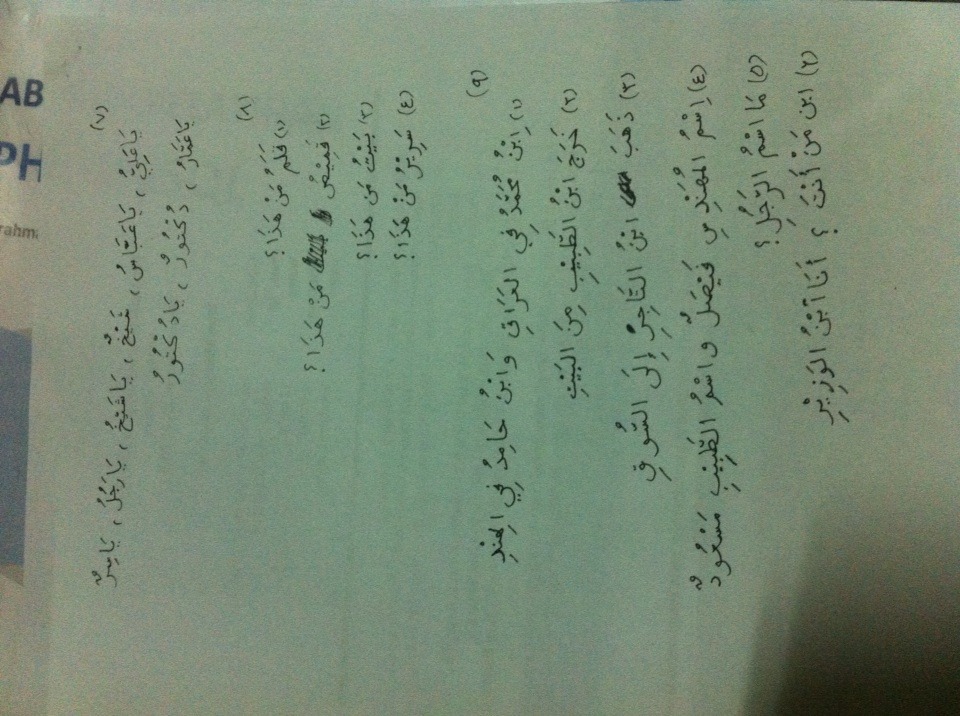 AB
PH
rahm
(٧)
يَاعَلِيُّ ، يَاعَبَّاسُ ، شَيْخٌ ، يَاشَيْخُ ، يَارَجُلُ ، يَاسِرٌ
يَاعَمَّارُ ، دُكْتُورٌ ، يَادُكْتُورُ
(٨)
(١) قَلَمُ مَنْ هَذَا؟
(٢) قَمِيْصُ مَنْ هَذَا؟
(٣) بَيْتُ مَنْ هَذَا؟
(٤) سَرِيْرُ مَنْ هَذَا؟
(٩)
(١) اِبْنُ مُحَمَّدُ فِي العَرَاقِ وَابْنُ حَامِدُ فِي الهِندِ
(٢) خَرَجَ ابْنُ الطَّبِيْبِ مِنَ البَيْتِ
(٣) ذَهَبَ ابْنُ التَّاجِرِ إِلَى السُّوقِ
(٤) اِسْمُ المُهَنْدِسِ فَيْصَلٌ واسْمُ الطَّبِيْبِ مَسْعُودٌ
(٥) مَا اسْمُ الرَّجُلِ؟
(٦) ابْن مَنْ أَنْتَ ؟ أَنَا ابْنُ الوَزِيْرِ